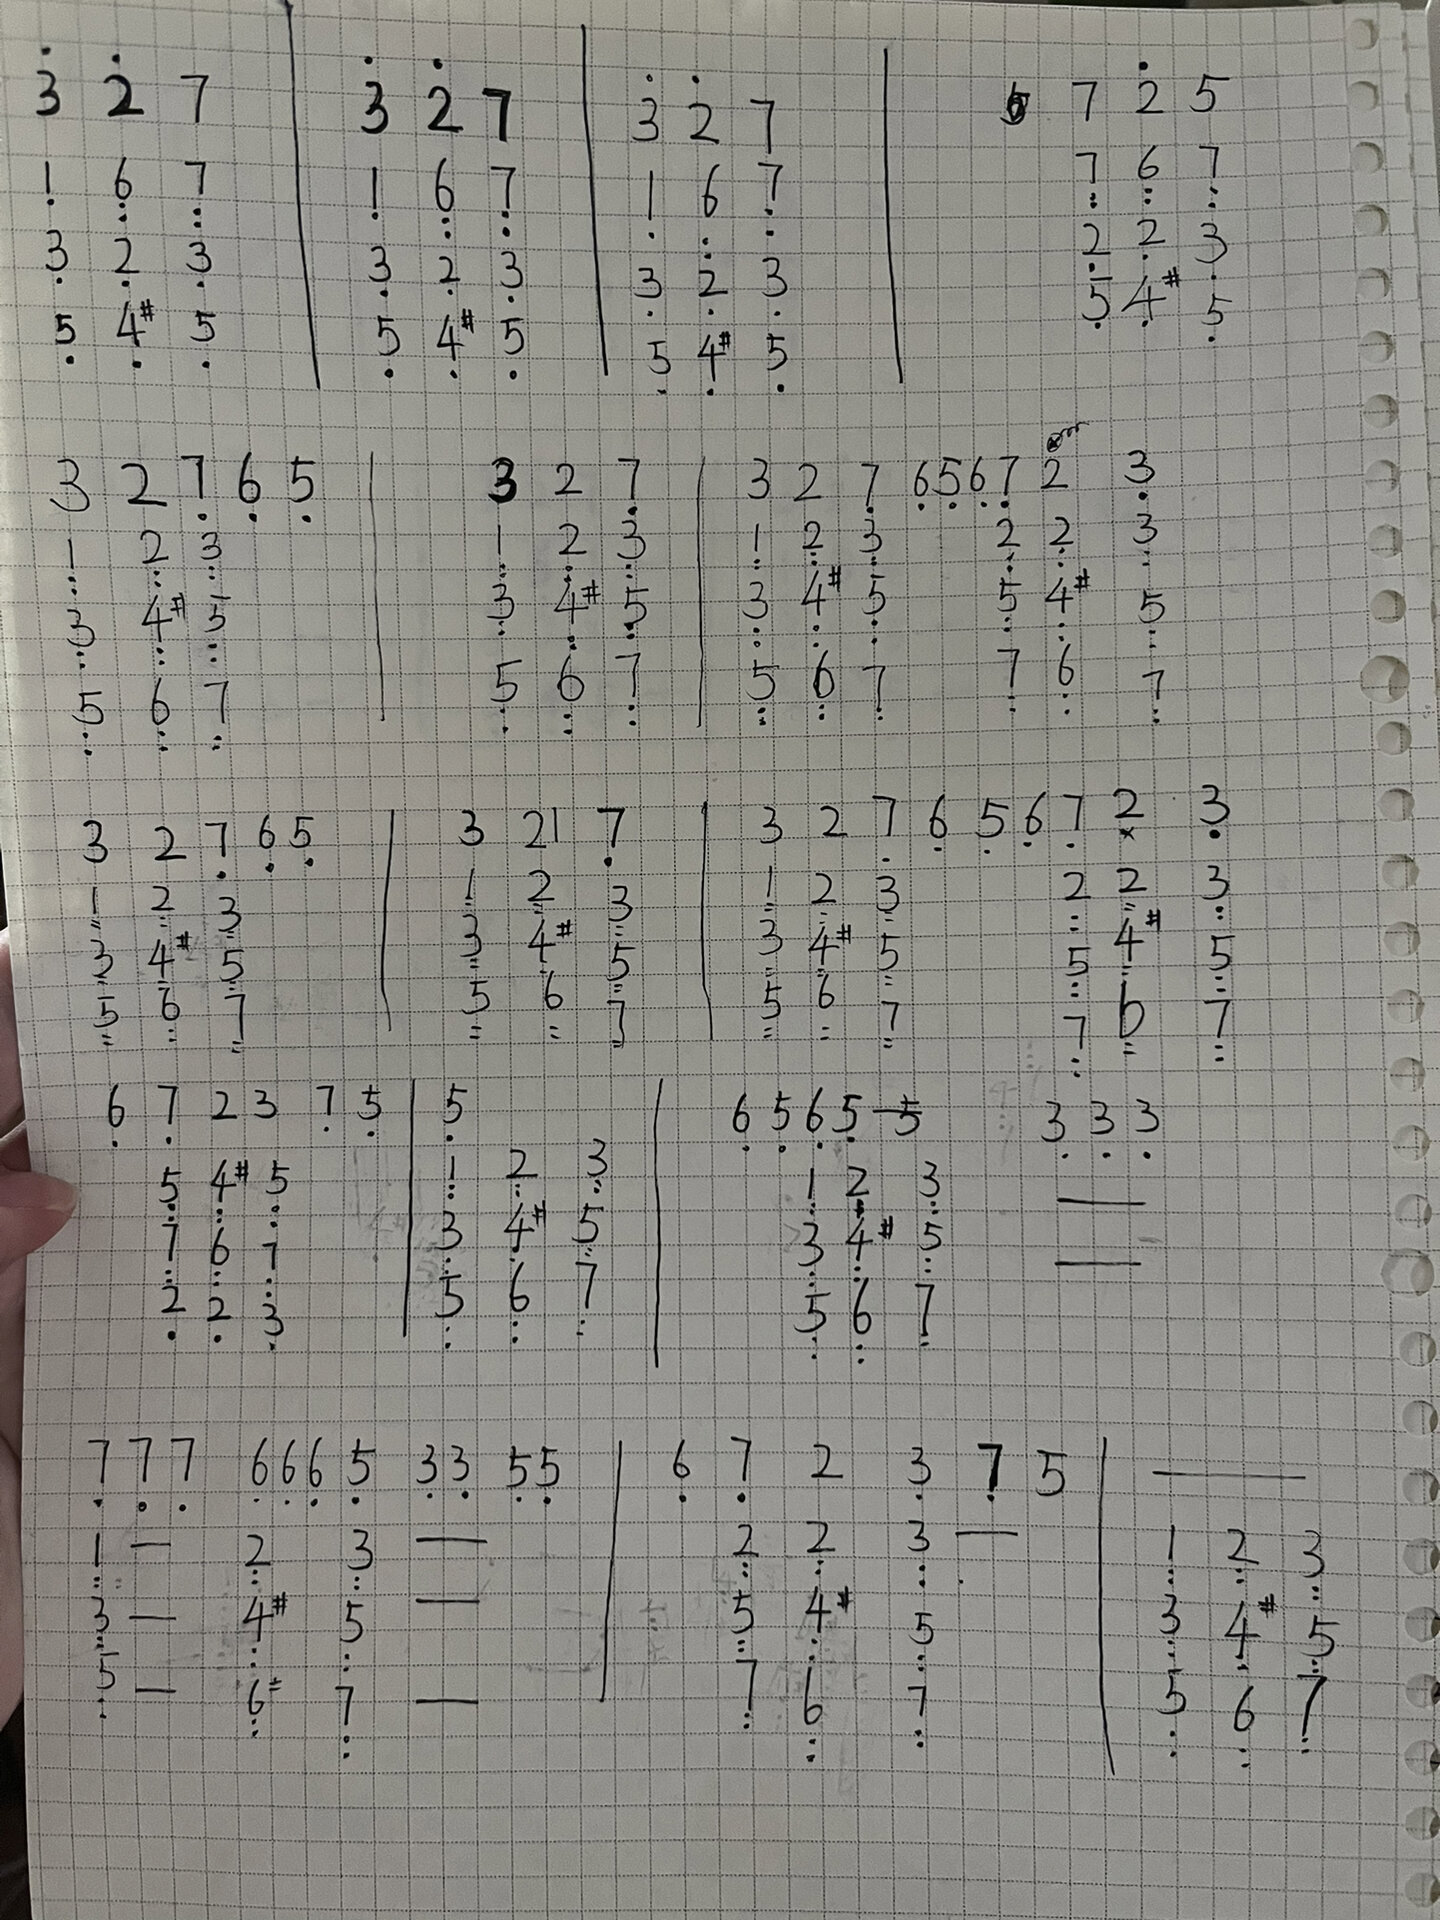 3 2 7 | 3 2 7 | 3 2 7 | 7 2 5
1 6 7 | 1 6 7 | 1 6 7 | 7 6 7
3 2 3 | 3 2 3 | 3 2 3 | 2 2 3
5 4# 5 | 5 4# 5 | 5 4# 5 | 5 4# 5
3 2 7 6 5 | 3 2 7 | 3 2 7 6567 2 3
1 2 3 | 1 2 3 | 1 2 3 2 2 3
3 4# 5 | 3 4# 5 | 3 4# 5 5 4# 5
5 6 7 | 5 6 7 | 5 6 7 7 6 7
3 2 7 6 5 | 3 21 7 | 3 2 7 6 5 6 7 2 3
1 2 3 | 1 2 3 | 1 2 3 2 2 3
3 4# 5 | 3 4# 5 | 3 4# 5 5 4# 5
5 6 7 | 5 6 7 | 5 6 7 7 6 7
6 7 2 3 7 5 | 5 | 6 5 6 5 3 3 3
5 4# 5 | 1 2 3 | 1 2 3 —
7 6 7 | 3 4# 5 | 3 4# 5 —
2 2 3 | 5 6 7 | 5 6 7
7 7 7 6 6 6 5 3 3 5 5 | 6 7 2 3 7 5 | —
1 — 2 3 — | 2 2 3 — | 1 2 3
3 — 4# 5 — | 5 4# 5 | 3 4# 5
5 — 6 7 — | 7 6 7 | 5 6 7